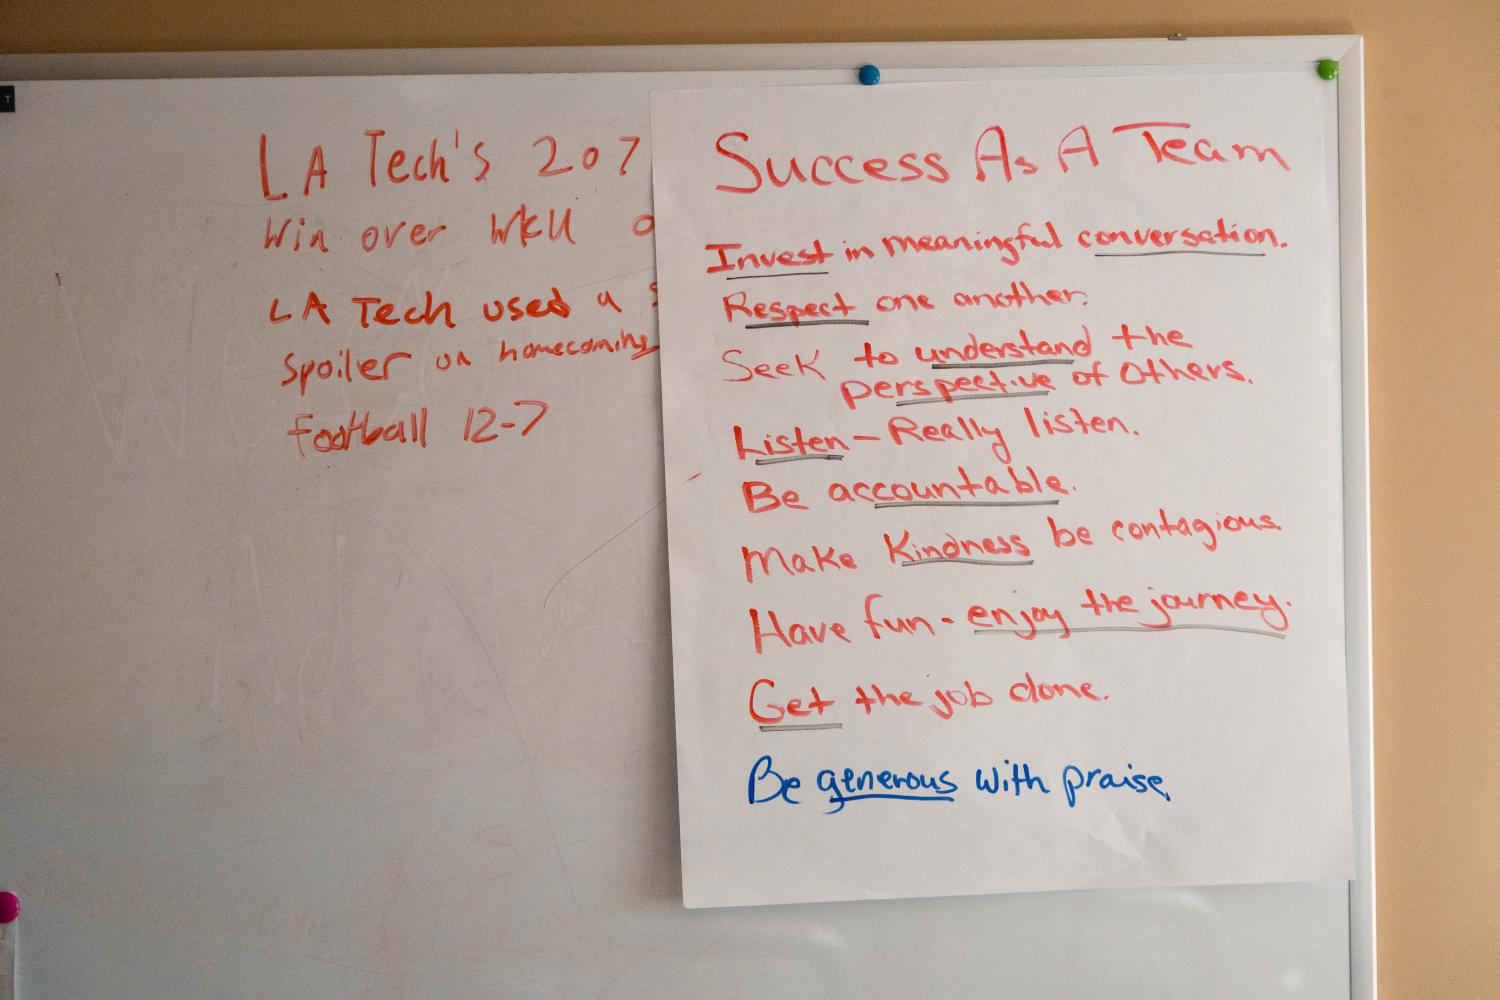 LA Tech's 207
Win over WKU
LA Tech used a
Spoiler on homecoming
Football 12-7
Success As A Team
Invest in meaningful conversation.
Respect one another.
Seek to understand the
perspective of others.
Listen - Really listen.
Be accountable.
Make Kindness be contagious.
Have fun - enjoy the journey.
Get the job done.
Be generous with praise.